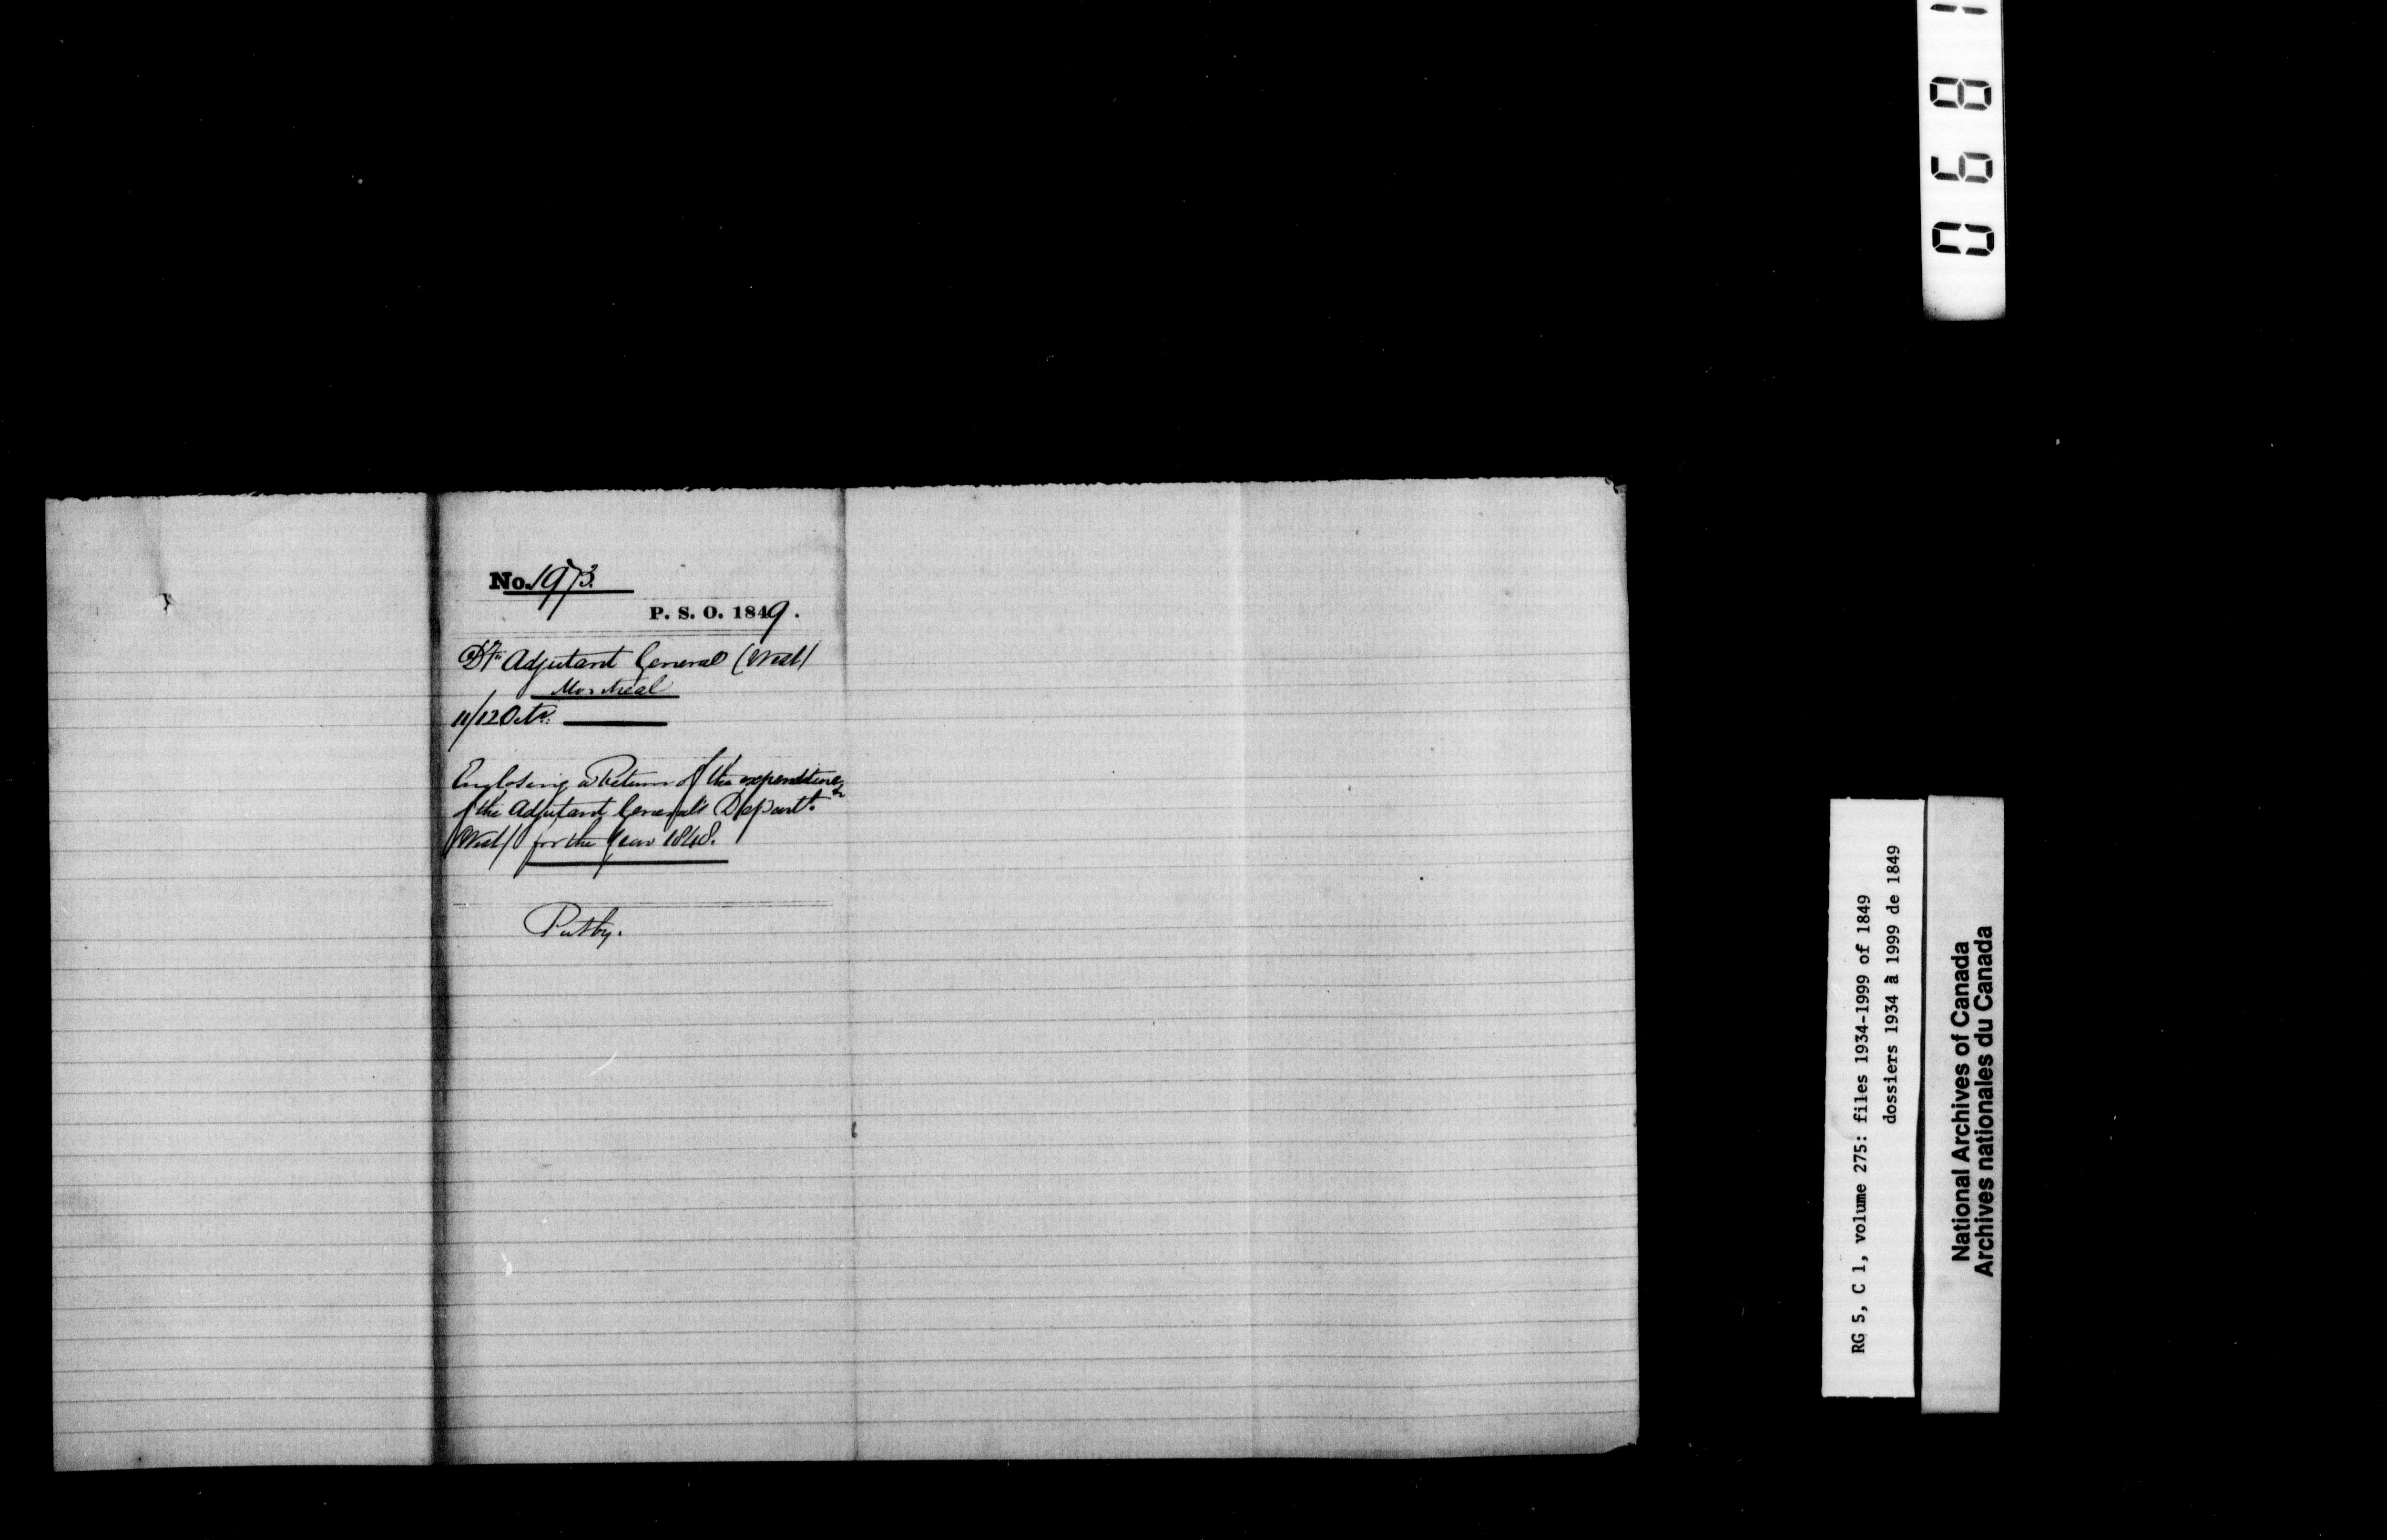 No. 1973.
P. S. O. 1849.
Dy. Adjutant General (West)
Montreal
11/12 Octr.
Enclosing a Return of the expenditure
of the Adjutant General's Depart.
(West) for the Year 1848.
Put by.
0681
RG 5, C 1, volume 275: files 1934-1999 of 1849
dossiers 1934 à 1999 de 1849
National Archives of Canada
Archives nationales du Canada